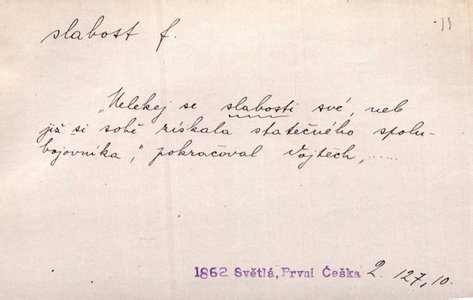 slabost f.
11
„Nelekej se slabosti své, neb
již si sobě získala statečného spolu-
bojovníka," pokračoval Vojtěch, ......
1862 Světlá, První Češka 2. 127, 10.